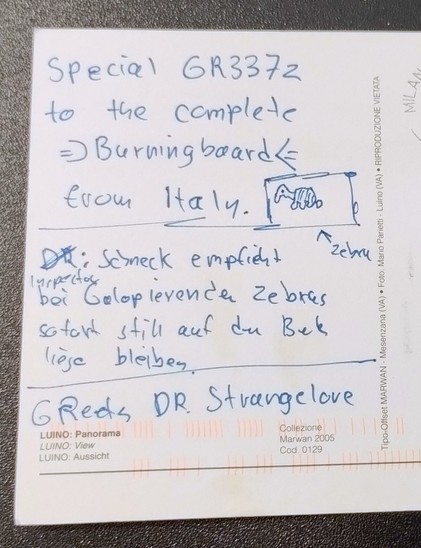 Special GR337z
to the complete
=> Burningboard <=
from Italy.
Zebra
DR.: Schneck empfieht
Inspector
bei Galopierenden Zebras
sofort still auf du Bek
liese bleiben.
GReets DR. Strangelove
LUINO: Panorama
LUINO: View
LUINO: Aussicht
Collezione
Marwan 2005
Cod. 0129
Tipo-Offset MARWAN - Mesenzana (VA) • Foto: Mario Parietti - Luino (VA) • RIPRODUZIONE VIETATA
MILAN